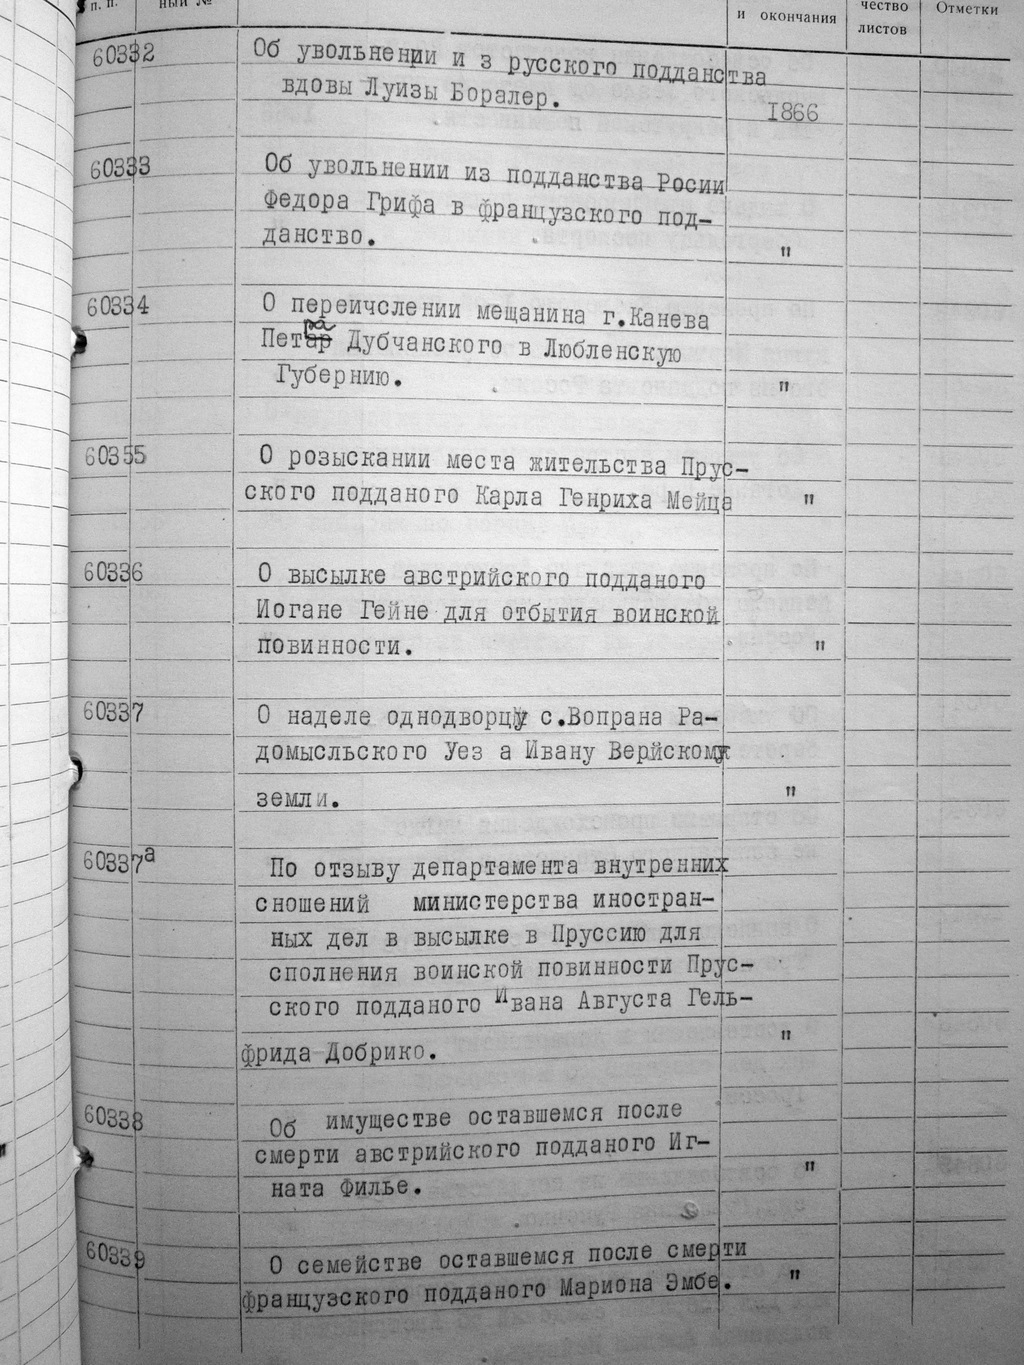 п. п.
ный №
и окончания
чество
листов
Отметки
60332
Об увольнении и з русского подданства
вдовы Луизы Боралер.
1866
60333
Об увольнении из подданства Росии
Федора Грифа в французского под-
данство.
"
60334
О переичслении мещанина г.Канева
Петра Дубчанского в Любленскую
Губернию.
"
60355
О розыскании места жительства Прус-
ского подданого Карла Генриха Мейца
"
60336
О высылке австрийского подданого
Иогане Гейне для отбытия воинской
повинности.
"
60337
О наделе однодворцу с.Вопрана Ра-
домысльского Уез а Ивану Верйскому
земли.
"
60337а
По отзыву департамента внутренних
сношений министерства иностран-
ных дел в высылке в Пруссию для
сполнения воинской повинности Прус-
ского подданого Ивана Августа Гель-
фрида Добрико.
"
60338
Об имуществе оставшемся после
смерти австрийского подданого Иг-
ната Филье.
"
60339
О семействе оставшемся после смерти
французского подданого Мариона Эмбе.
"